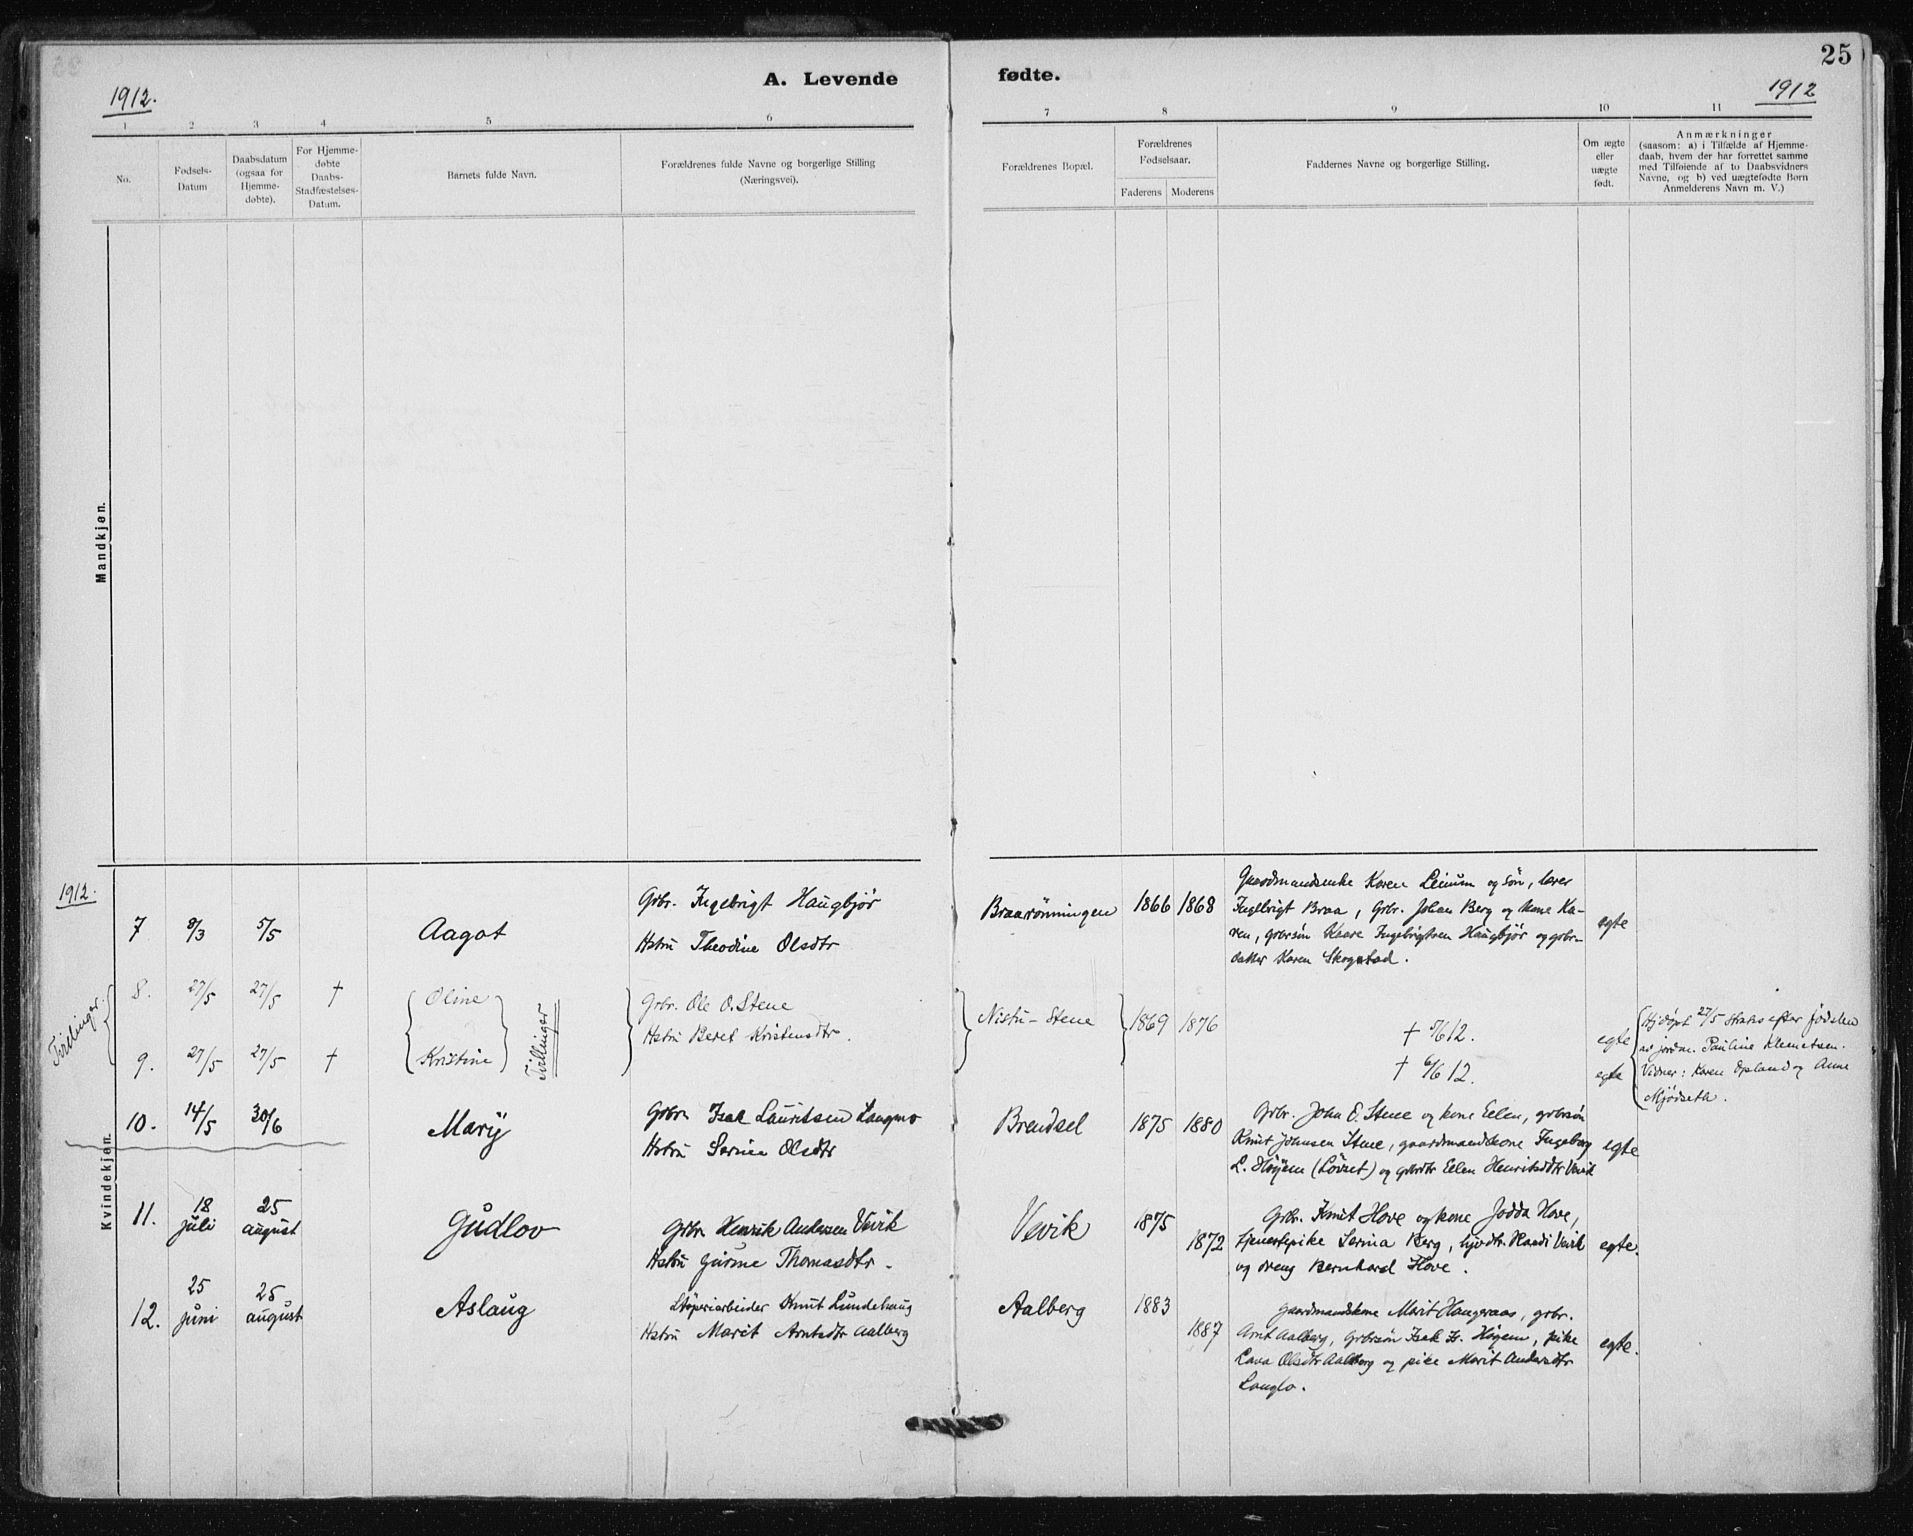 25
A. Levende fødte.
1912.
1912
1 2 3 4 5 6 7 8 9 10 11
No.
Fødsels-
Datum
Daabsdatum
(ogsaa for
Hjemme-
døbte).
For Hjemme-
døbte
Daabs-
Stadfæstelses-
Datum.
Barnets fulde Navn.
Forældrenes fulde Navne og borgerlige Stilling
(Næringsvei).
Forældrenes Bopæl.
Forældrenes
Fødselsaar.
Faderens Moderens
Faddernes Navne og borgerlige Stilling.
Om ægte
eller
uægte
født.
Anmærkninger
(saasom: a) i Tilfælde af Hjemme-
daab, hvem der har forrettet samme
med Tilføiende af to Daabsvidners
Navne, og b) ved uægtefødte Børn
Anmelderens Navn m. V.)
Mandkjøn.
Kvindekjøn.
1912.
7 8/3 5/5 Aagot
Grbr. Ingebrigt Haugbjør
Hstru Theodine Olsdtr
Braarønningen 1866 1868
Gaardmandsenke Karen Leinum og søn, lærer
Ingebrigt Braa, Grbr. Johan Berg og kone Ka-
ren, grbrsøn Kaare Ingebrigtsen Haugbjør og grbr-
datter Karen Skogstad.
egte
8. 27/5 27/5 † Oline
9. 27/5 27/5 † Kristine
Tvillinger
Grbr. Ole O. Stene
Hstru Beret Kristensdtr.
Nistu-Stene 1869 1876
† 5/6 12. egte
† 6/6 12. egte
Hjdøpt 27/5 straks efter fødslen
av jordm. Pauline Klemetsen.
Vidner: Karen Opland og Anne
Mjødseth.
10. 14/5 30/6 Mary
Grbr. Isak Lauritsen Langmo
Hstru Serine Olsdtr
Brendsel 1875 1880
Grbr. John O. Stene og kone Elen, grbrsøn
Knut Johnsen Stene, gaardmandskone Ingeborg
L. Høyem (Løvset) og grbrdtr Elen Henriksdtr Vevik
egte
11. 18 juli 25 august Gudlov
Grbr. Henrik Andersen Vevik
Hstru Gurine Thomasdtr.
Vevik 1875 1872
Grbr. Knut Hove og kone Jodda Hove,
tjenestepike Serina Berg, hjvdtr. Randi Vevik
og dreng Bernhard Hove.
egte.
12. 25 juni 25 august Aslaug
Støperiarbeider Knut Lundehaug
Hstru Marit Arntsdtr Aalberg
Aalberg 1883 1887
Gaardmandskone Marit Haugeraas, grbr.
Arnt Aalberg, Grbrsøn Isak Høyem, pike
Lava Olsdtr Aalberg og pike Marit Andersdtr
Langlo.
egte.